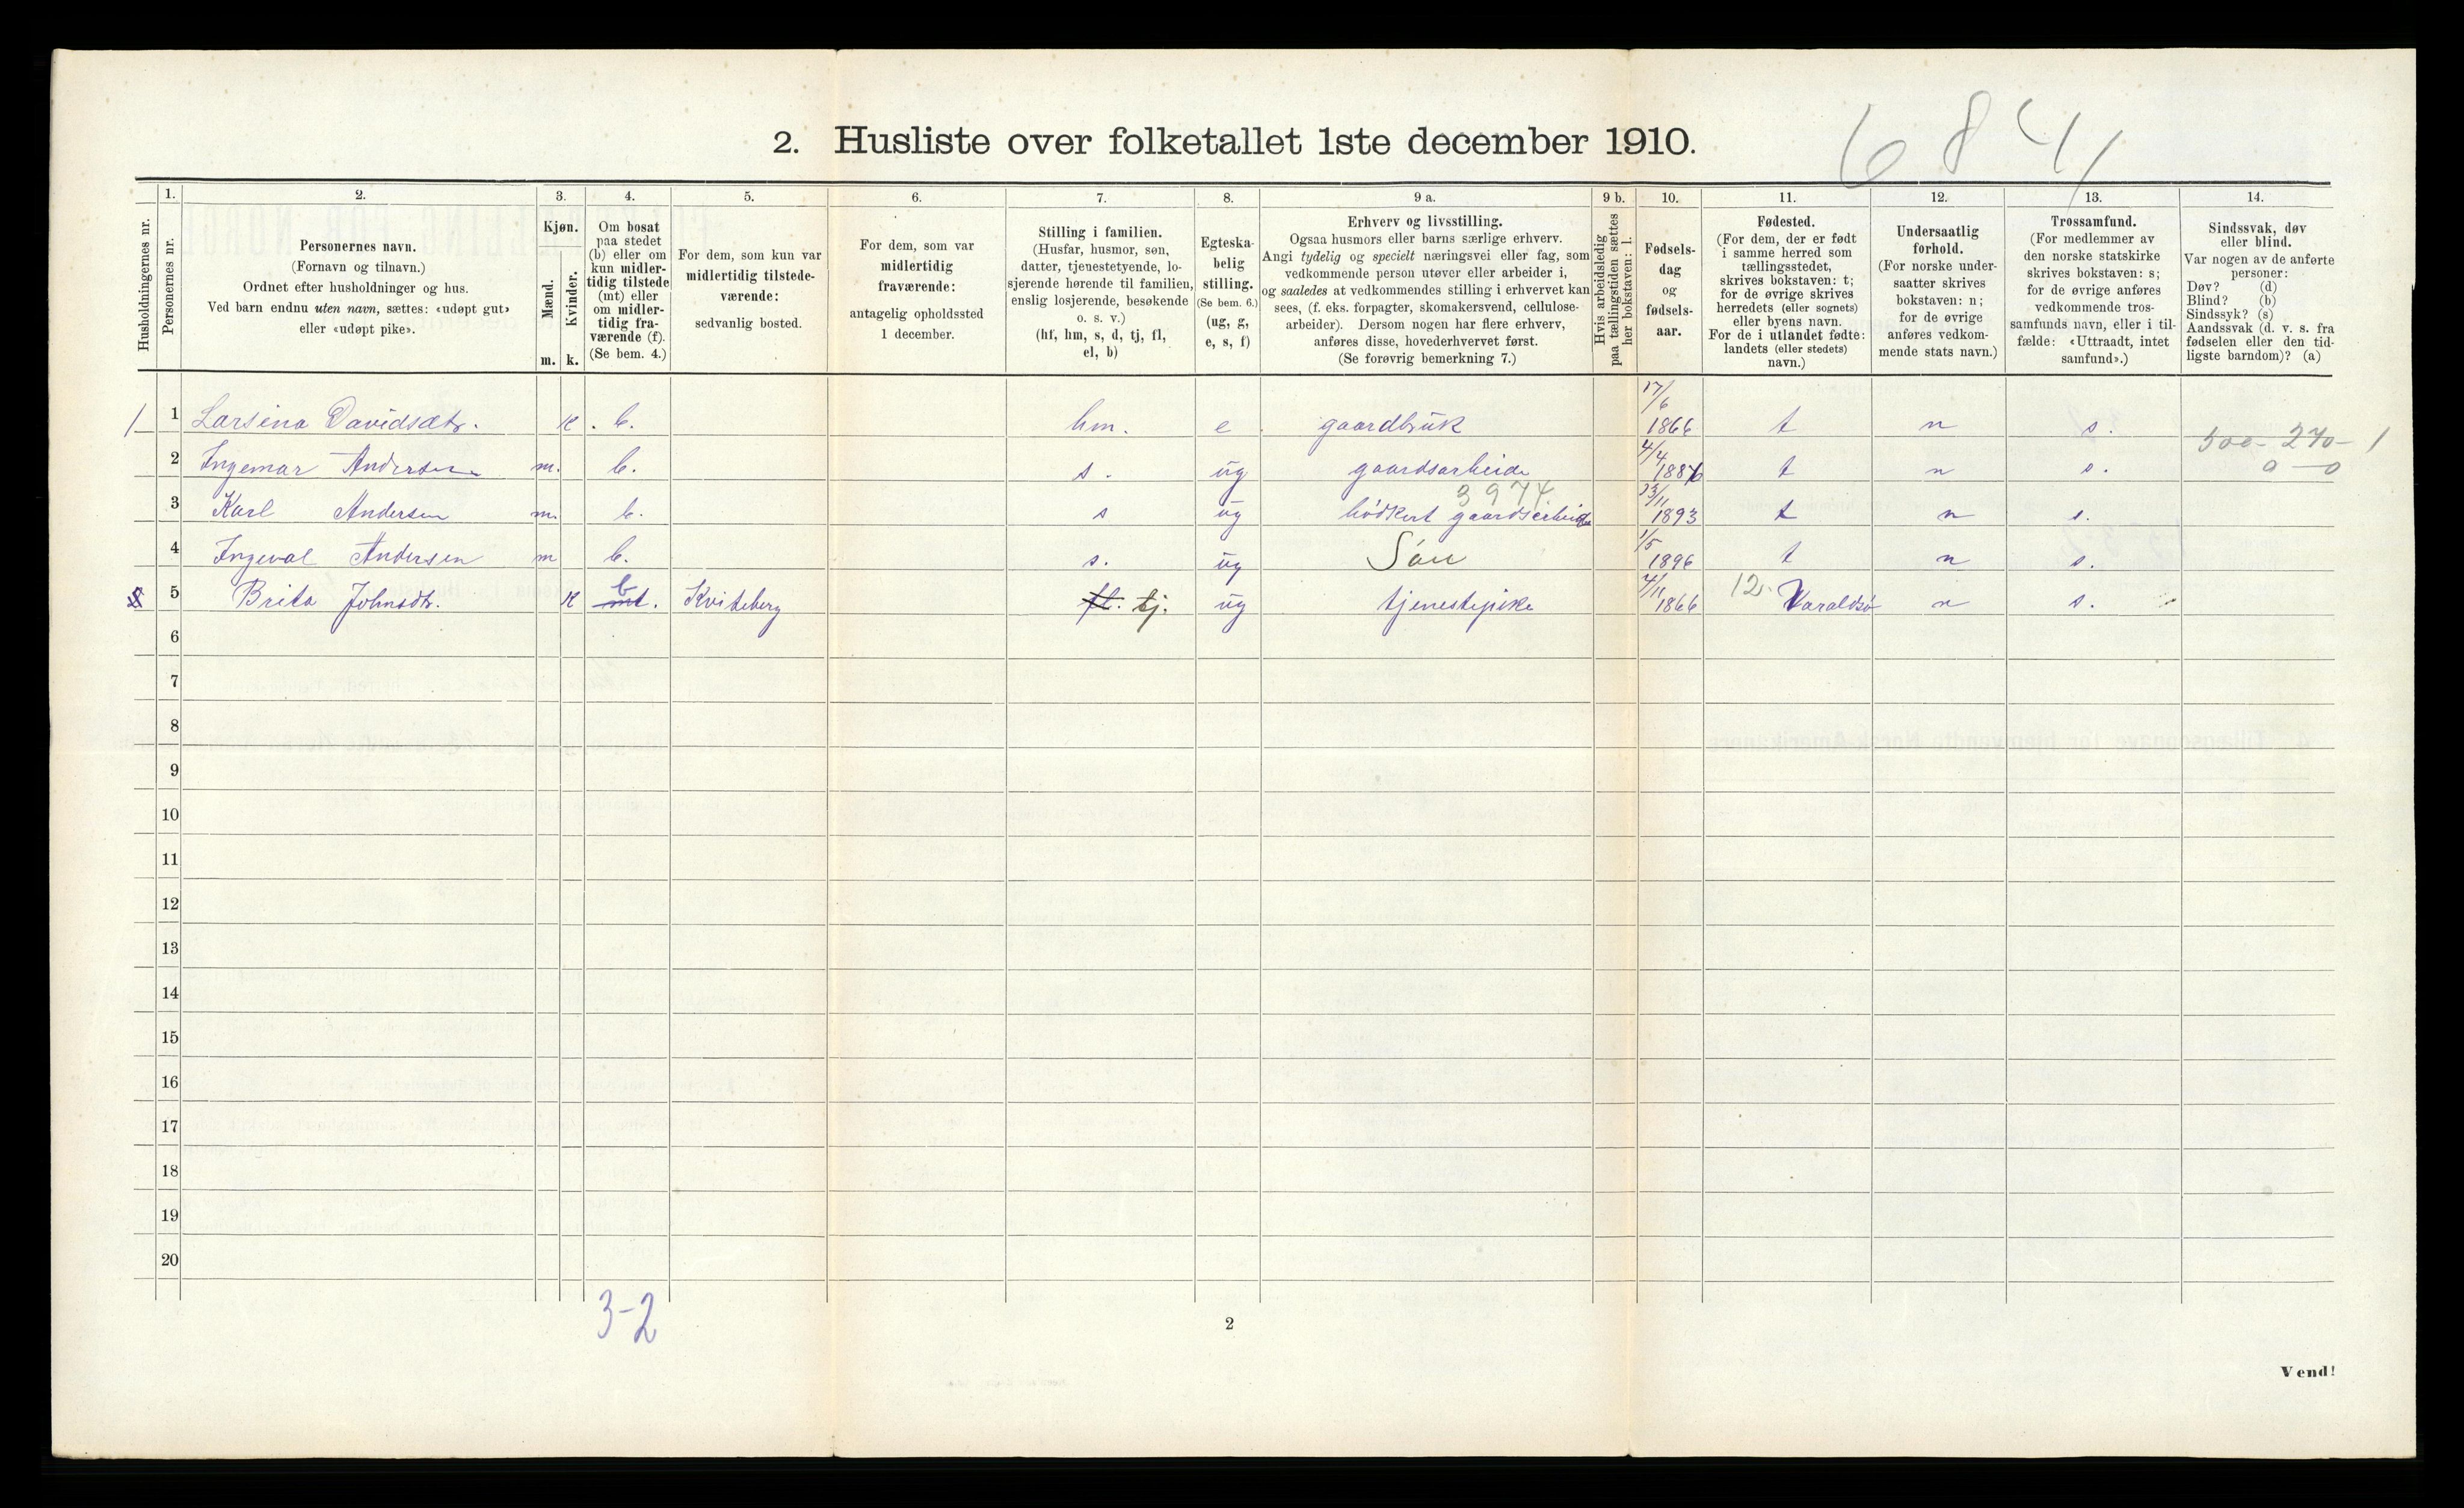 684
2. Husliste over folketallet 1ste december 1910.
Husholdningernes nr.
1. Personernes nr.
2. Personernes navn. (Fornavn og tilnavn.) Ordnet efter husholdninger og hus. Ved barn endnu uten navn, sættes: «udøpt gut» eller «udøpt pike».
3. Kjøn. Mænd. m. Kvinder. k.
4. Om bosat paa stedet (b) eller om kun midlertidig tilstede (mt) eller om midlertidig fraværende (f). (Se bem. 4.)
5. For dem, som kun var midlertidig tilstedeværende: sedvanlig bosted.
6. For dem, som var midlertidig fraværende: antagelig opholdssted 1 december.
7. Stilling i familien. (Husfar, husmor, søn, datter, tjenestetyende, losjerende hørende til familien, enslig losjerende, besøkende o. s. v.) (hf, hm, s, d, tj, fl, el, b)
8. Egteskabelig stilling. (Se bem. 6.) (ug, g, e, s, f)
9 a. Erhverv og livsstilling. Ogsaa husmors eller barns særlige erhverv. Angi tydelig og specielt næringsvei eller fag, som vedkommende person utøver eller arbeider i, og saaledes at vedkommendes stilling i erhvervet kan sees, (f. eks. forpagter, skomakersvend, cellulosearbeider). Dersom nogen har flere erhverv, anføres disse, hovederhvervet først. (Se forøvrig bemerkning 7.)
9 b. Hvis arbeidsledig paa tællingstiden sættes her bokstaven: l.
10. Fødselsdag og fødselsaar.
11. Fødested. (For dem, der er født i samme herred som tællingsstedet, skrives bokstaven: t; for de øvrige skrives herredets (eller sognets) eller byens navn. For de i utlandet fødte: landets (eller stedets) navn.)
12. Undersaatlig forhold. (For norske undersaatter skrives bokstaven: n; for de øvrige anføres vedkommende stats navn.)
13. Trossamfund. (For medlemmer av den norske statskirke skrives bokstaven: s; for de øvrige anføres vedkommende trossamfunds navn, eller i tilfælde: «Uttraadt, intet samfund».)
14. Sindssvak, døv eller blind. Var nogen av de anførte personer: Døv? (d) Blind? (b) Sindssyk? (s) Aandssvak (d. v. s. fra fødselen eller den tidligste barndom)? (a)
1 1 Larsina Davidsdtr. k . b. hm. e gaardbruk 17/6 1866 t n s. 500 - 270 - 1
2 Ingemar Andersen m. b. s. ug gaardsarbeide 4/4 1886 t n s. 0 - 0
3974
3 Karl Andersen m. b. s ug gaardsarbeide 23/11 1893 t n s.
4 Ingeval Andersen m b. s. ug Søn 1/5 1896 t n s.
5 Brita Johnsdtr. k mt. b Kviteberg fl. tj. ug tjenestepike 4/11 1866 12. Varaldsø n s.
6
7
8
9
10
11
12
13
14
15
16
17
18
19
20
3-2
2
Vend!